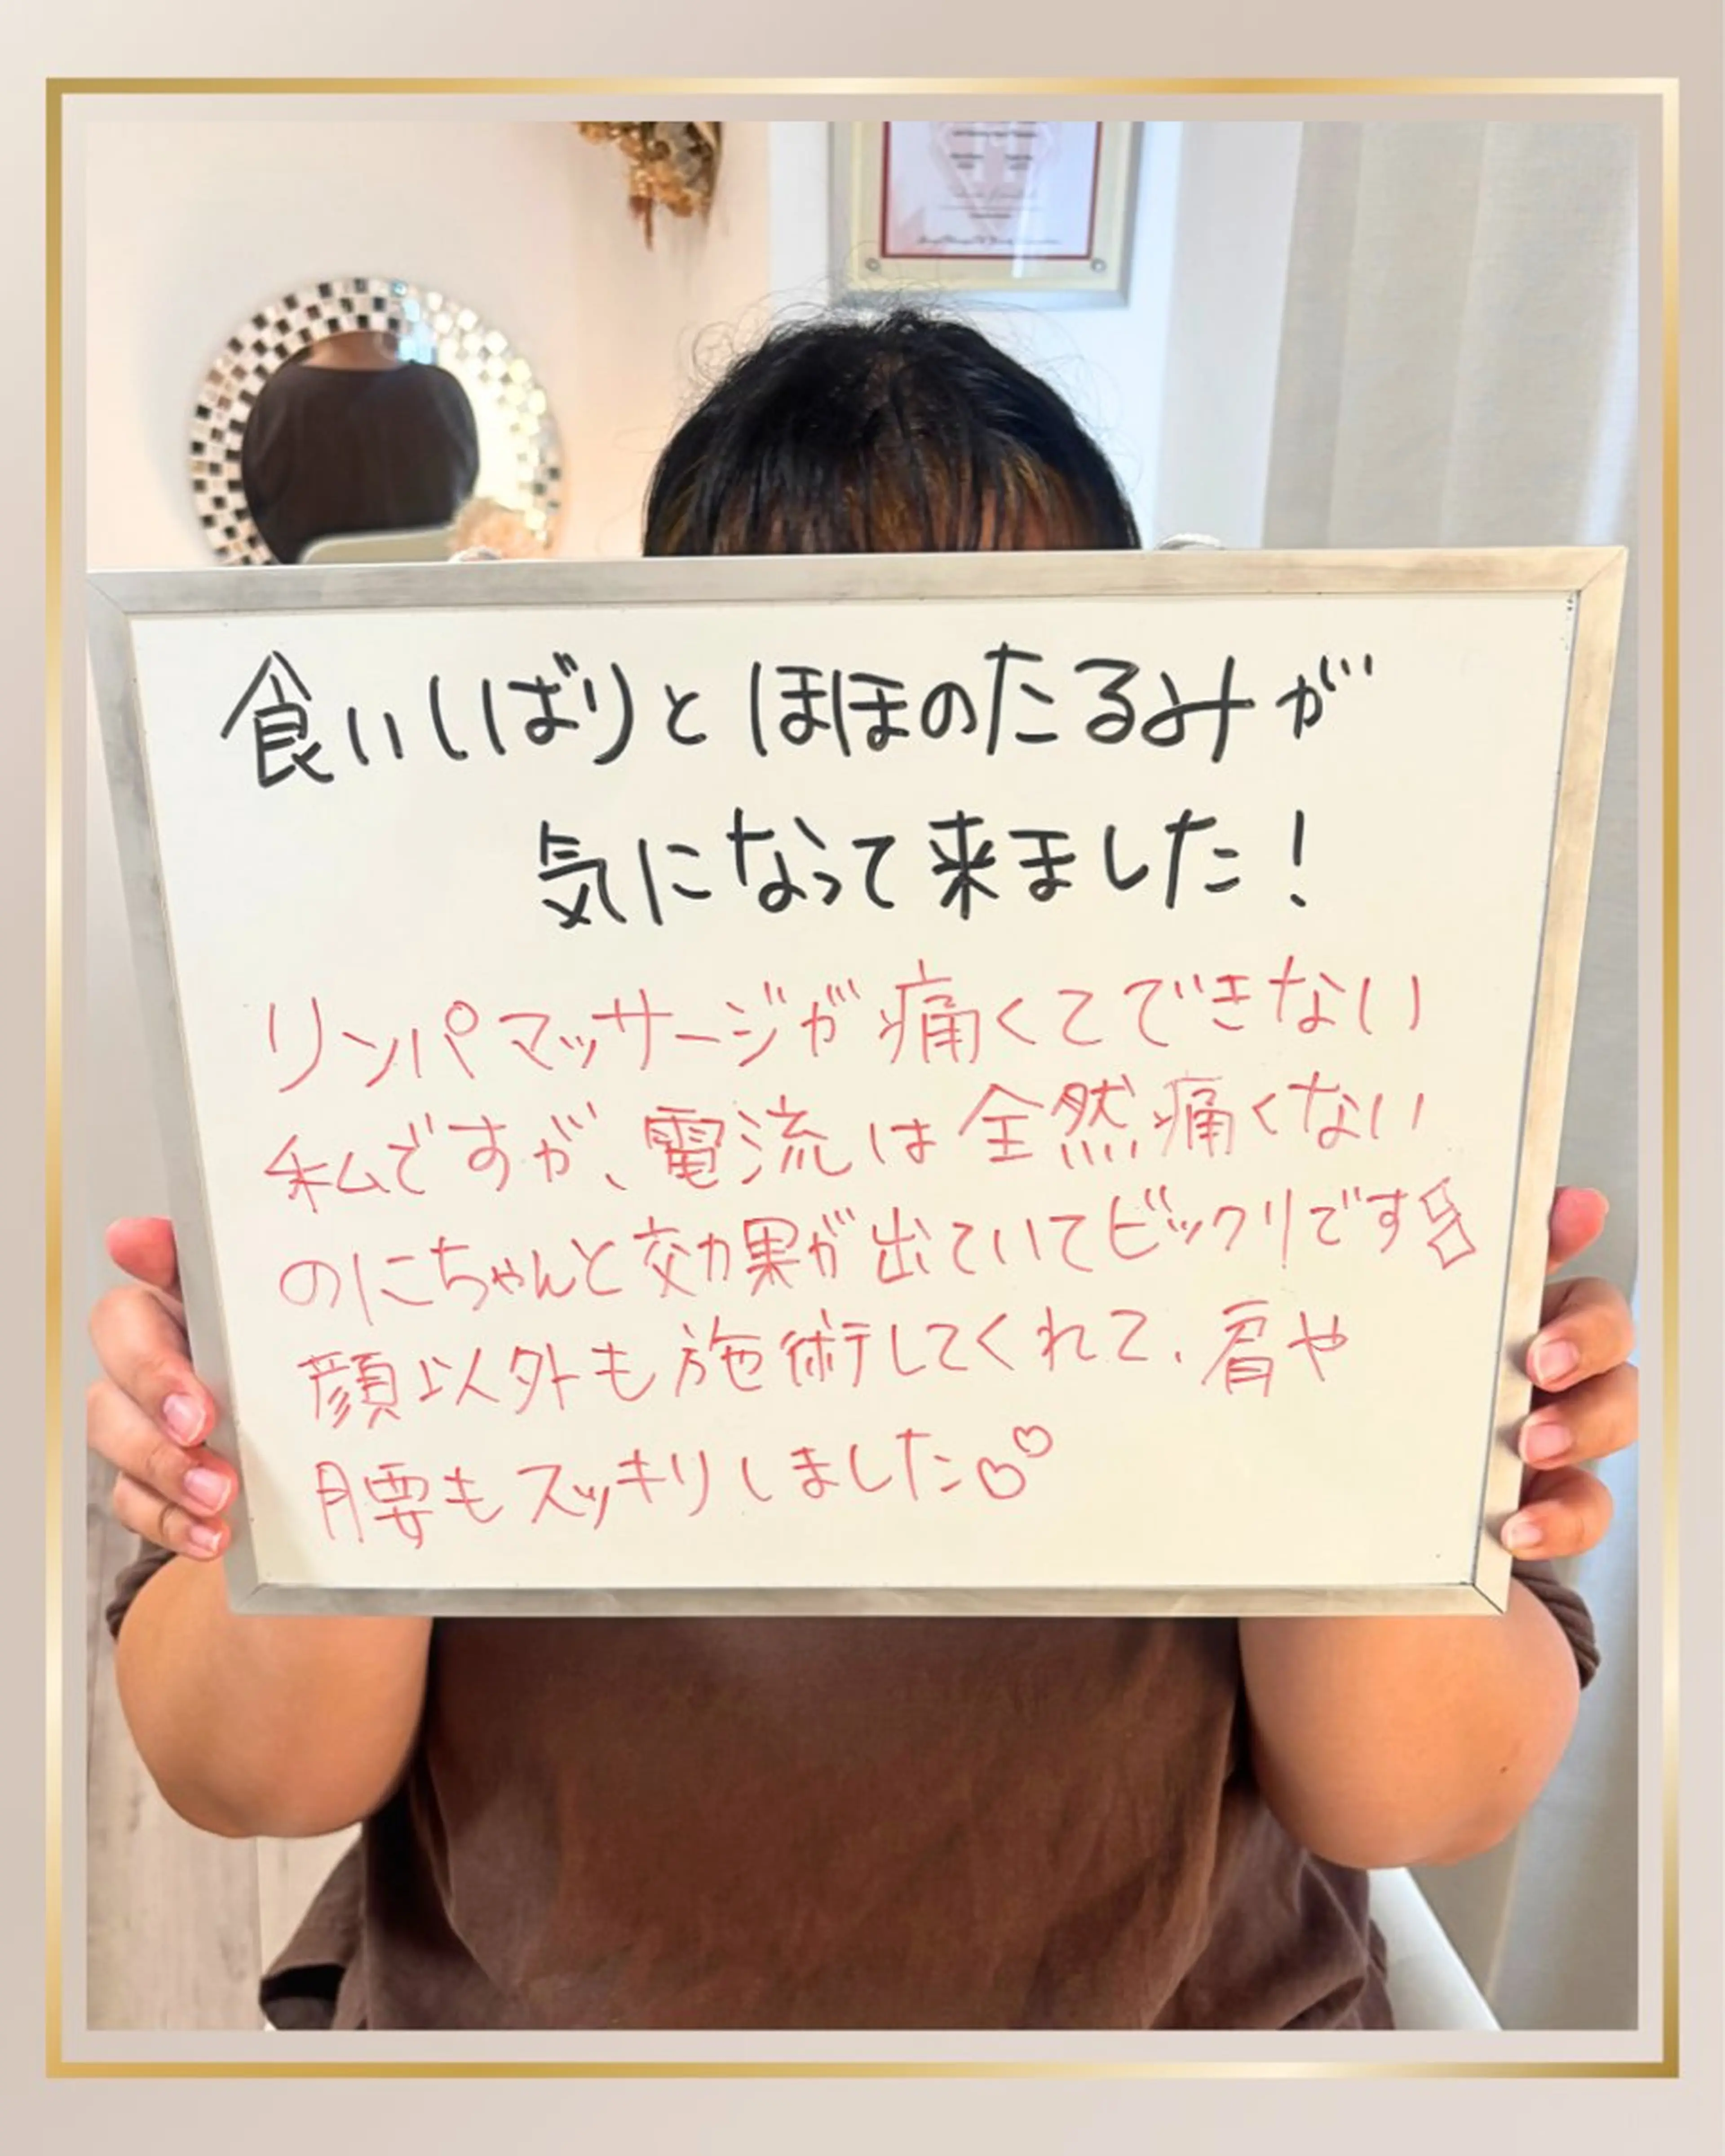 食いしばりとほほのたるみが
気になって来ました！
リンパマッサージが痛くてできない
私ですが、電流は全然痛くない
のにちゃんと効果が出ていてビックリです
顔以外も施術してくれて、肩や
腰もスッキリしました♡♡